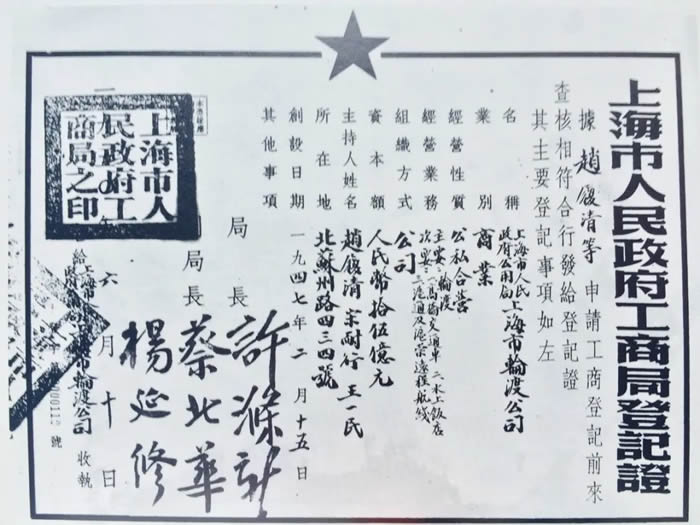 上海市人民政府工商局登記證
據趙馥清等申請工商登記前來
查核相符合行發給登記證
其主要登記事項如左
名稱 上海市人民政府公用局上海市輪渡公司
業別 商業
經營性質 公私合營
經營業務 主業:輪渡
次業:一、高橋交通車 二、水上飯店
三、滬通及滬崇遠程航线
組織方式 公司
資本額 人民幣拾伍億元
主持人姓名 趙馥清 宗耐行 王一民
所在地 北蘇州路四三四號
創設日期 一九四七年二月十五日
其他事項
局長 許滌新
局長 蔡北華
楊延修
上海市人
民政府工
商局之印
六月十日
給上海市輪渡公司收執
號